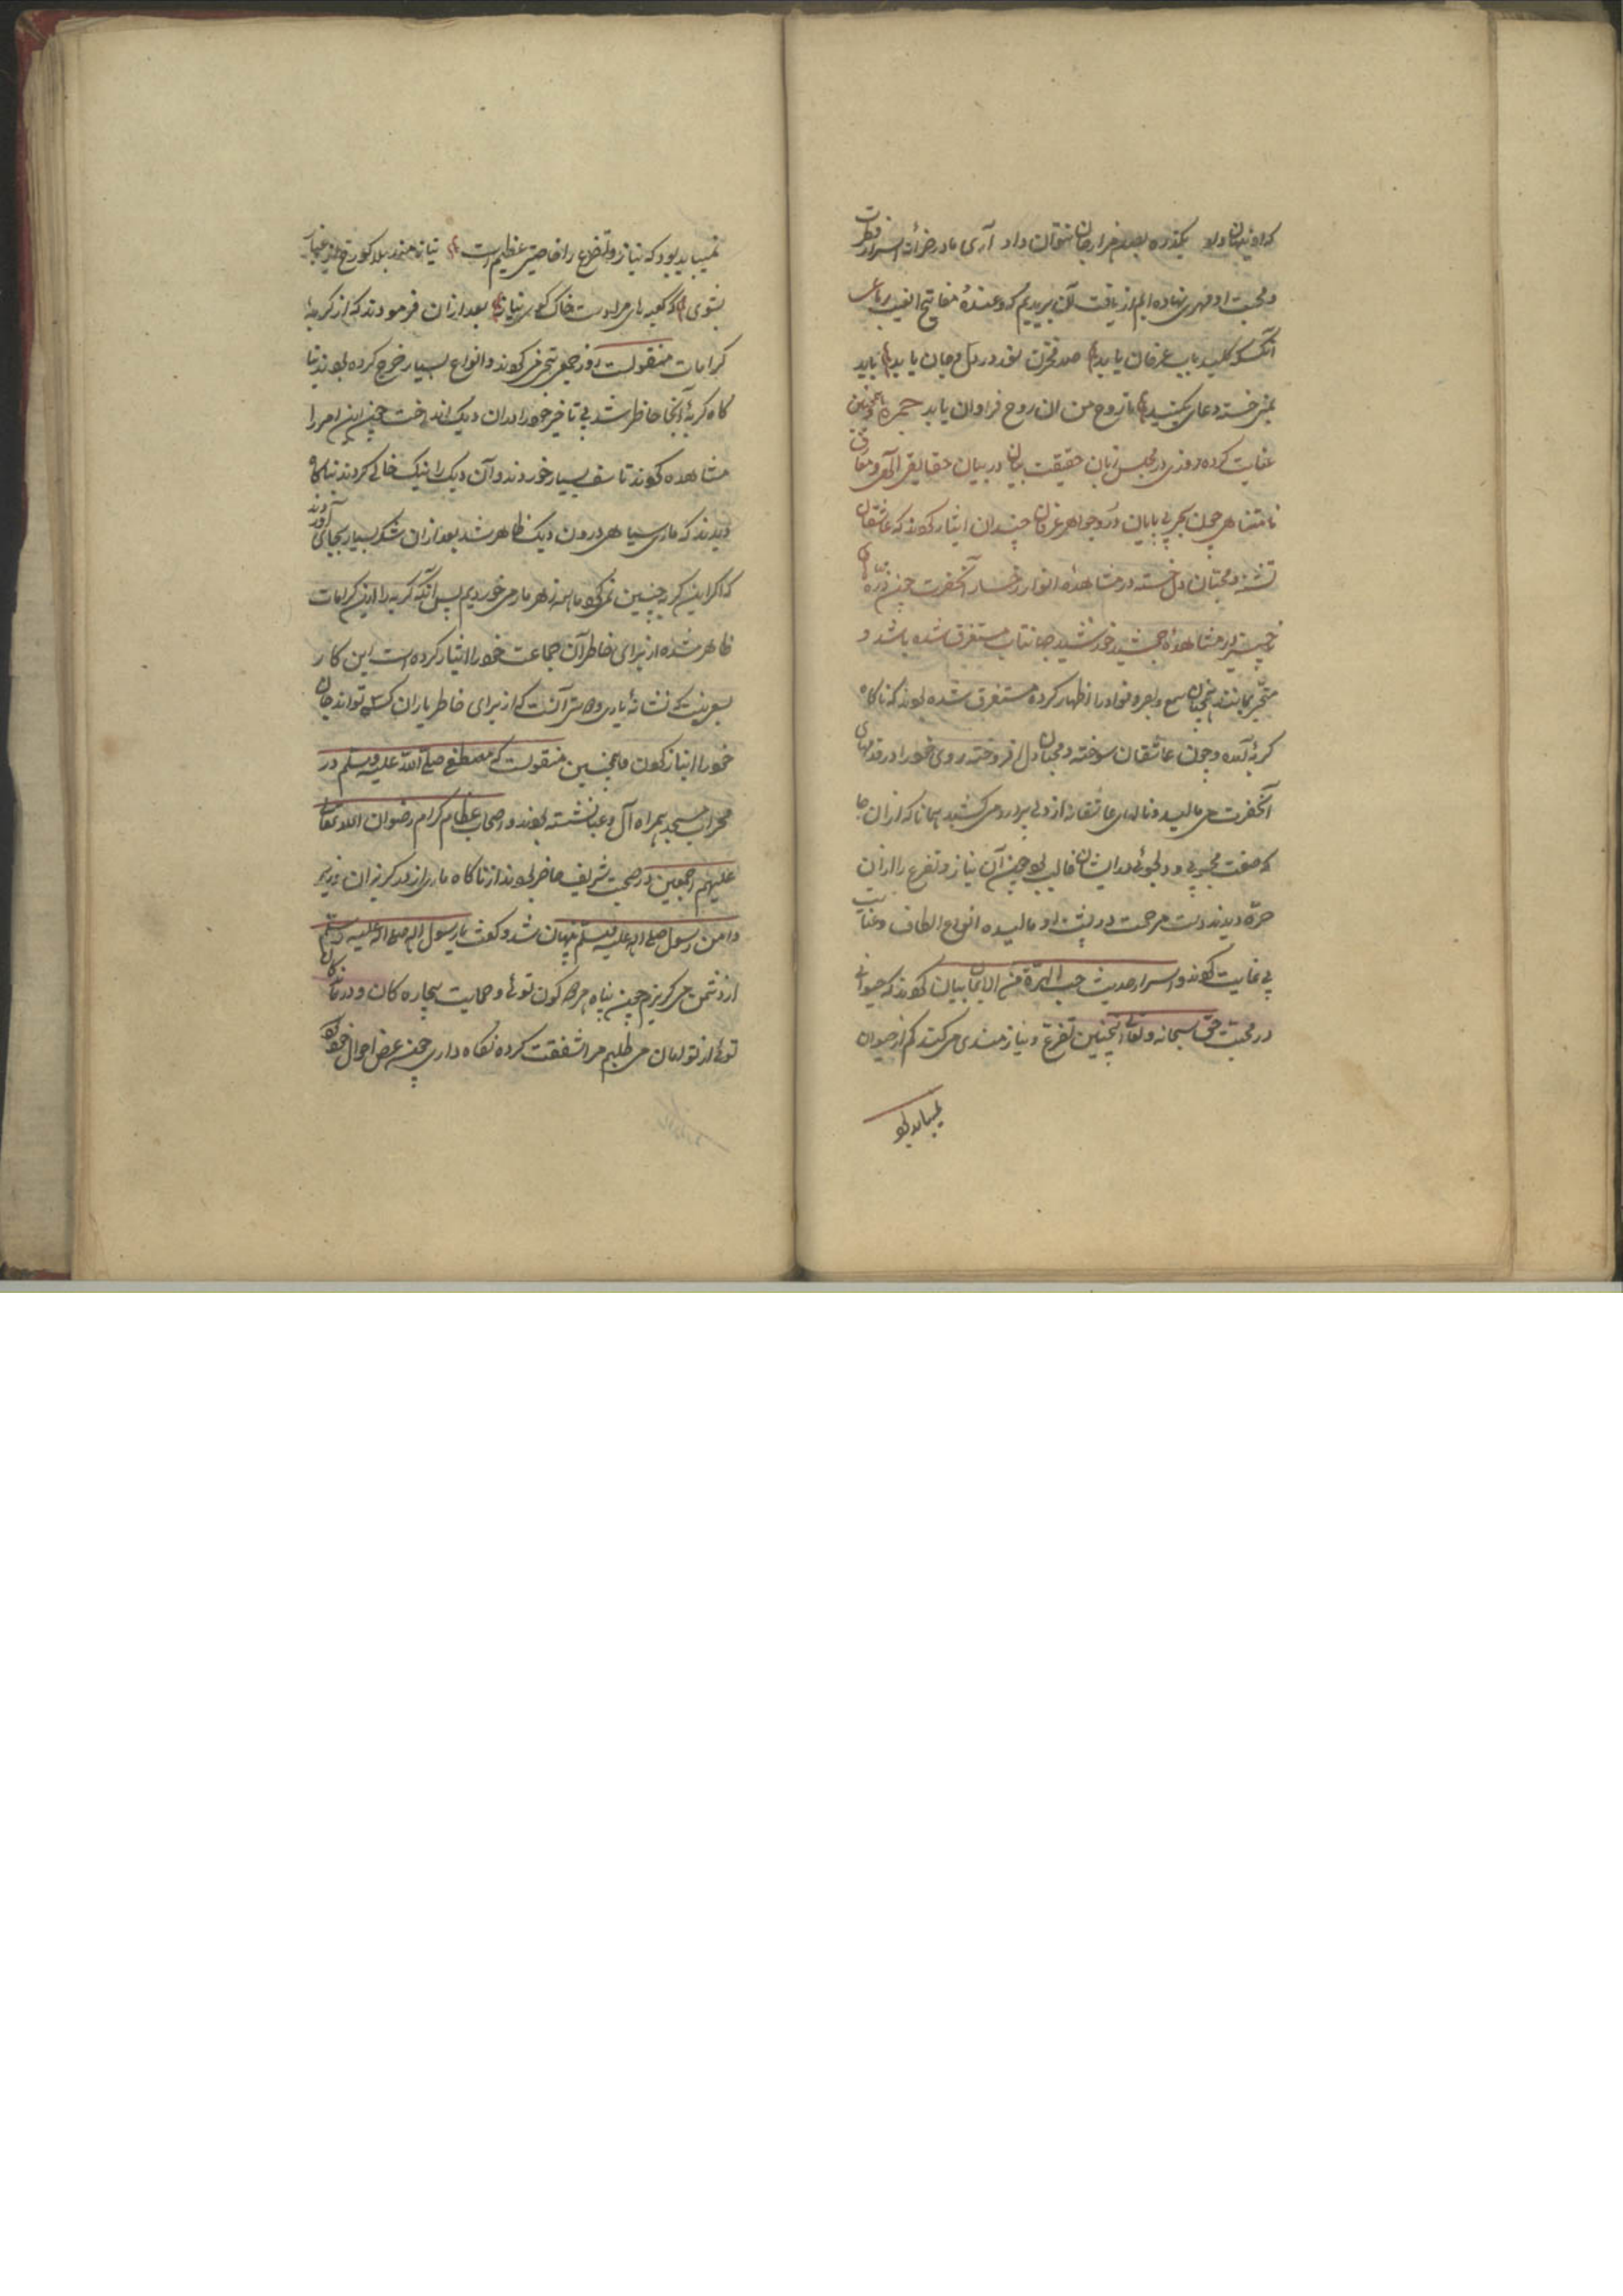 که او نیهان دارد یکذره بصد هزار جان نتوان داد آری مادر خزانه اسرار فطرت
و محبت او مهری نهاده ایم از یافت آن بریدیم که و عنده مفاتیح الغیب رباعی
آنکس که کلید باب عرفان یابد صد مخزن نقد در دل و جان یابد باید
خسته دعای بکنید تا روح من ان روح فراوان یابد
عنایت کرده روزی در مجلس زبان حقیقت بیان در بیان حقایق الهی و معارف
نامتناهی چون بحر بی پایان در و جواهر عرفان چندان ایثار کردند که عاشقان
تشنه و محبتان دل خسته در مشاهده انوار رخسار آنحضرت چون ذره
در مشاهده جمشید خورشید جهانتاب مستغرق شده باشد و
متحیر بمانند همچنان سمع و بصره و فواد را اظهار کرده مستغرق شده بودند که ناکاه
کربه آمده و چون عاشقان سوخته و محبان دل افروخته روی خود را در قدمهای
آنحضرت می مالید و نالهای عاشقانه از دل پر درد می کشید همانا که ازان جا
که صفت محبوبی و دلجوئی در ایشان غالب بود چون آن نیاز و تضرع را ازان
حره دیدند دست مرحمت در پشت او مالیده انواع الطاف و عنایت
بی غایت کردند و اسرار حدیث حب الهرة من الایمان بیان کردند که حیوانی
در محبت حق سبحانه و تعالی اینچنین تضرع و نیازمندی می کند کم از حیوان
نمیباید بود
نمیباید بود که نیاز و تضرع را خاصیتی عظیم است نیازمند بلا کو رخ از غبار
بشوی که کعبهای مرادست خاک کوی نیاز بعد ازان فرمودند که از کربه
کرامات منقولست روزی جمعی کردند و انواع بسیار خرج کرده بودند نا
کاه کربه آنجا حاظر شد بی تاخیر خود را دران دیک انداخت چون این امر را
مشاهده کردند تاسف بسیار خوردند و آن دیک را نیک خالی کردند ناکاه
دیدند که ماری سیاهی درون دیک ظاهر شد بعد ازان شکر بسیار بجای آوردند
که اکر این کربه چنین نمی کرد ما همه زهر مار می خوردیم پس آنکه کربه را این کرامات
ظاهر شده از برای خاطر آن جماعت خود را ایثار کرده است این کار
نشانه یاری و آنست که از برای خاطر یاران کسی تواند جان
خود را ایثار کردن و همچنین منقولست که مصطفی صلی الله علیه و سلم در
محراب مسجد همراه آل و عبا نشسته بودند و اصحاب عظام کرام رضوان الله تعالی
علیهم اجمعین در صحبت شریف حاضر بودند از ناکاه ماری از در کریزان
دامن رسول صلی الله علیه و سلم پنهان شد و کفت یا رسول الله صلی الله علیه و سلم
از دشمن می کریزم چون پناه هر دو کون توئی و حمایت بیچاره کان و درماندکان
توئی از تو امان می طلبم مرا شفقت کرده نکاه داری چون عرض احوال خود کرد